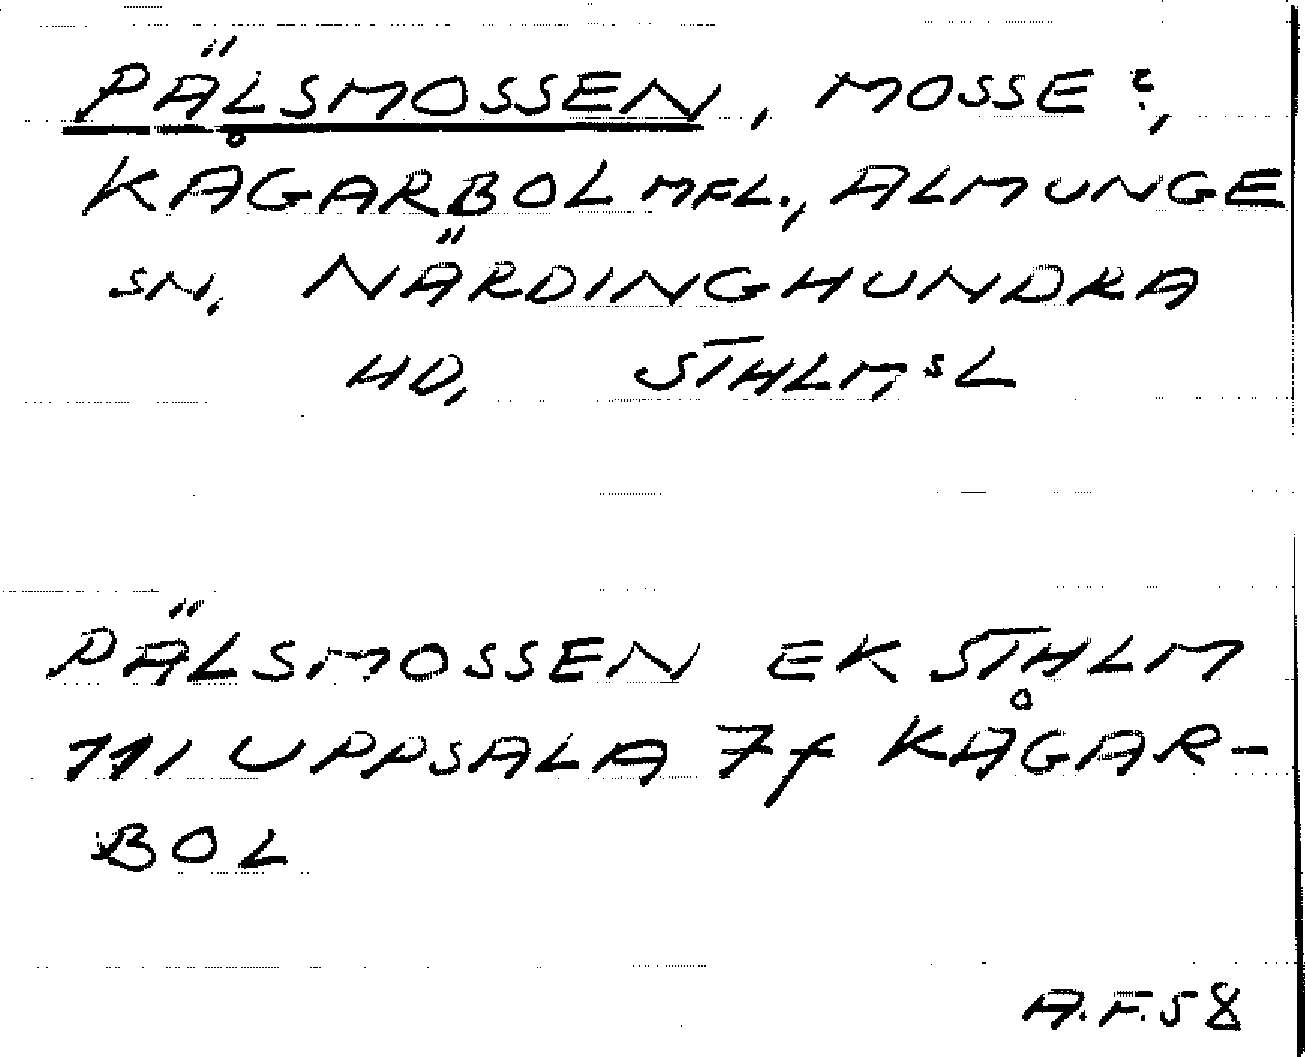 PÄLSMOSSEN, MOSSE?,
KÅGARBOL MFL., ALMUNGE
SN. NÄRDINGHUNDRA
HD, STHLMSL
PÄLSMOSSEN EK STHLM
111 UPPSALA 7f KÅGAR-
BOL
A.F.58